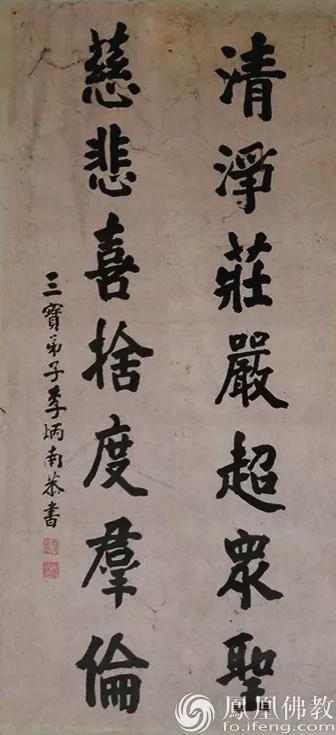 清淨莊嚴超眾聖
慈悲喜捨度羣倫
三寶弟子李炳南恭書
鳳凰佛教
fo.ifeng.com